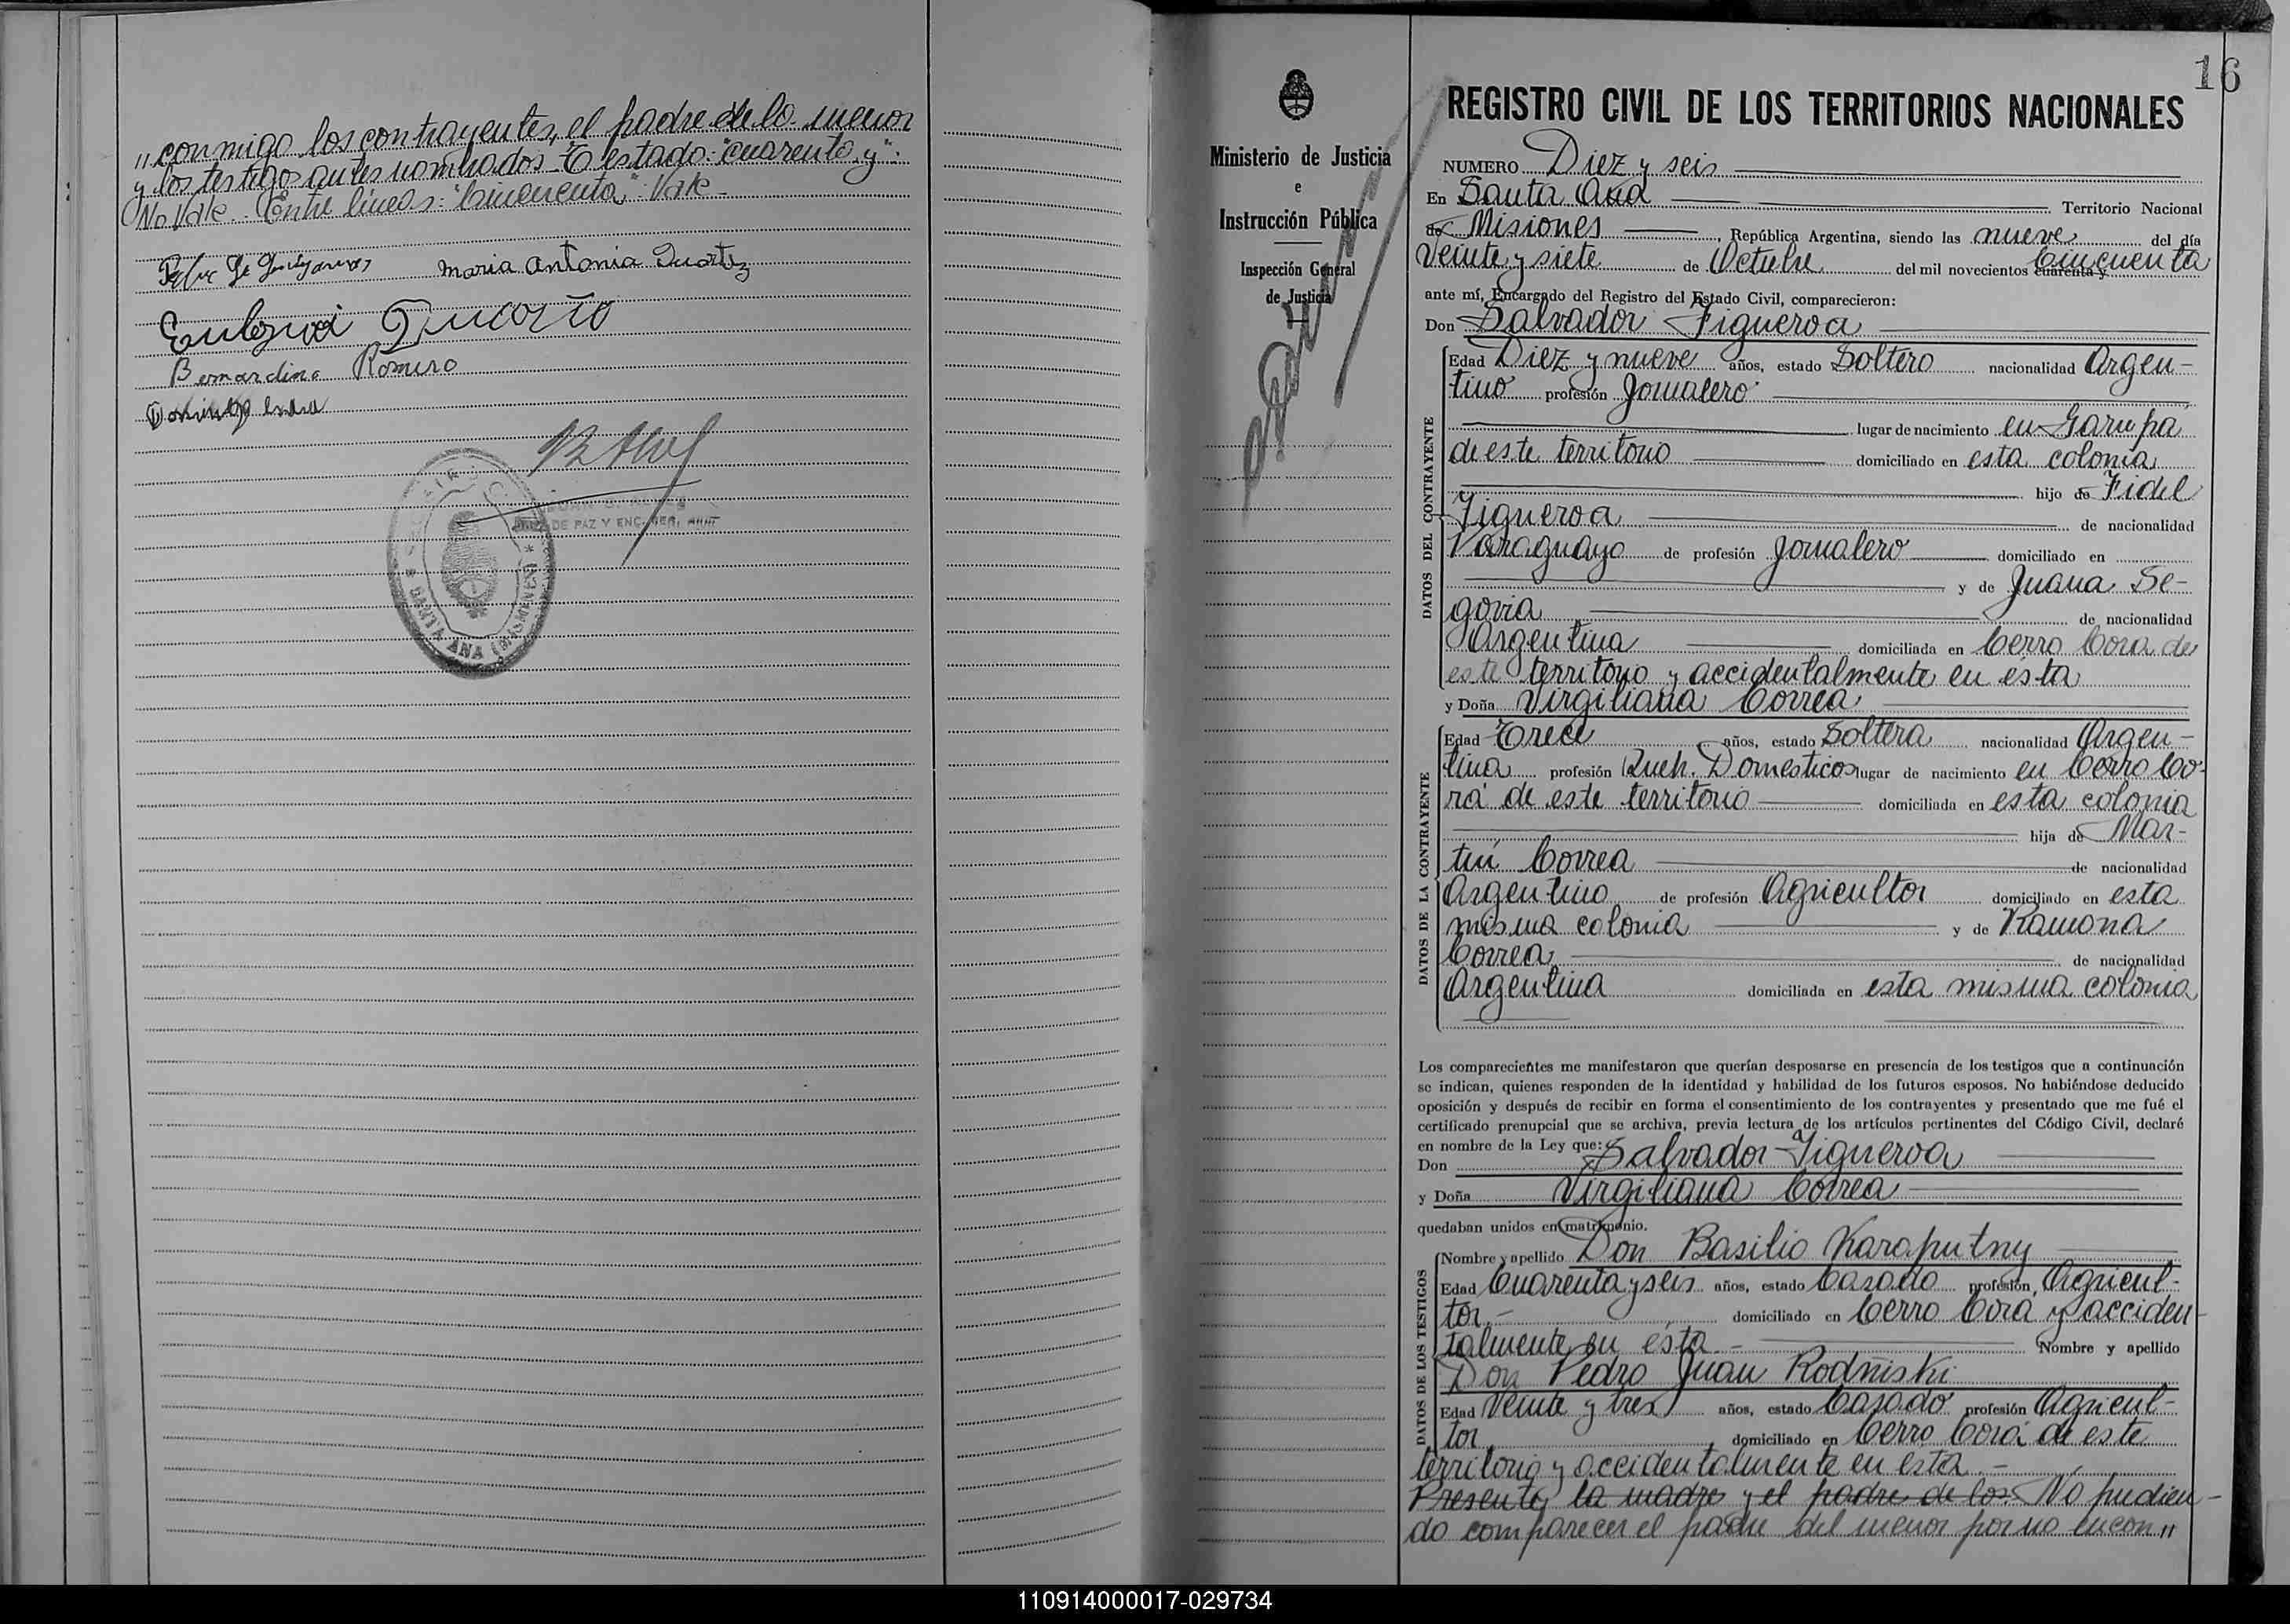 "conmigo los contrayentes, el padre de la menor
y los testigos antes nombrados. Testado: "cuarenta y":
No Vale. Entre lineas: "Cincuenta": Vale
Maria Antonia Duarte
Bernardino Romero
DE PAZ Y ENC.
SANTA ANA (MISIONES)
16
Ministerio de Justicia
e
Instrucción Pública
Inspección General
de Justicia
REGISTRO CIVIL DE LOS TERRITORIOS NACIONALES
NUMERO Diez y seis
En Santa Ana Territorio Nacional
de Misiones, República Argentina, siendo las nueve del día
Veinte y siete de Octubre del mil novecientos cuarenta y Cincuenta
ante mí, Encargado del Registro del Estado Civil, comparecieron:
Don Salvador Figueroa
DATOS DEL CONTRAYENTE
Edad Diez y nueve años, estado Soltero nacionalidad Argen-
tino profesión Jornalero
lugar de nacimiento en Garupa
de este territorio domiciliado en esta colonia
hijo de Fidel
Figueroa de nacionalidad
Paraguayo de profesión Jornalero domiciliado en
y de Juana Se-
govia de nacionalidad
Argentina domiciliada en Cerro Cora de
este territorio y accidentalmente en ésta
y Doña Virgiliana Correa
DATOS DE LA CONTRAYENTE
Edad Trece años, estado Soltera nacionalidad Argen-
tina profesión Queh. Domesticos lugar de nacimiento en Cerro Co-
rá de este territorio domiciliada en esta colonia
hija de Mar-
tin Correa de nacionalidad
Argentino de profesión Agricultor domiciliado en esta
misma colonia y de Ramona
Correa de nacionalidad
Argentina domiciliada en esta misma colonia
Los comparecientes me manifestaron que querían desposarse en presencia de los testigos que a continuación
se indican, quienes responden de la identidad y habilidad de los futuros esposos. No habiéndose deducido
oposición y después de recibir en forma el consentimiento de los contrayentes y presentado que me fué el
certificado prenupcial que se archiva, previa lectura de los artículos pertinentes del Código Civil, declaré
en nombre de la Ley que:
Don Salvador Figueroa
y Doña Virgiliana Correa
quedaban unidos en matrimonio.
DATOS DE LOS TESTIGOS
Nombre y apellido Don Basilio Karaputny
Edad Cuarenta y seis años, estado Casado profesión Agricul-
tor.- domiciliado en Cerro Cora y acciden-
talmente en ésta.- Nombre y apellido
Don Pedro Juan Rodniski
Edad Veinte y tres años, estado Casado profesión Agricul-
tor domiciliado en Cerro Corá de este
territorio y accidentalmente en esta.-
Presente, la madre y el padre de los. No pudien-
do comparecer el padre del menor por no encon"
110914000017-029734